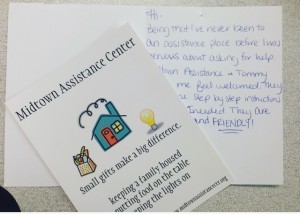 Hi-
Being that I've never been to
an assistance place before I was
nervous about asking for help
Assistance & Tommy
me feel welcomed they
step by step instructions
needed They are
and FRIENDLY!
Midtown Assistance Center
Small gifts make a big difference.
keeping a family housed
putting food on the table
the lights on
midtownassistancecenter.org